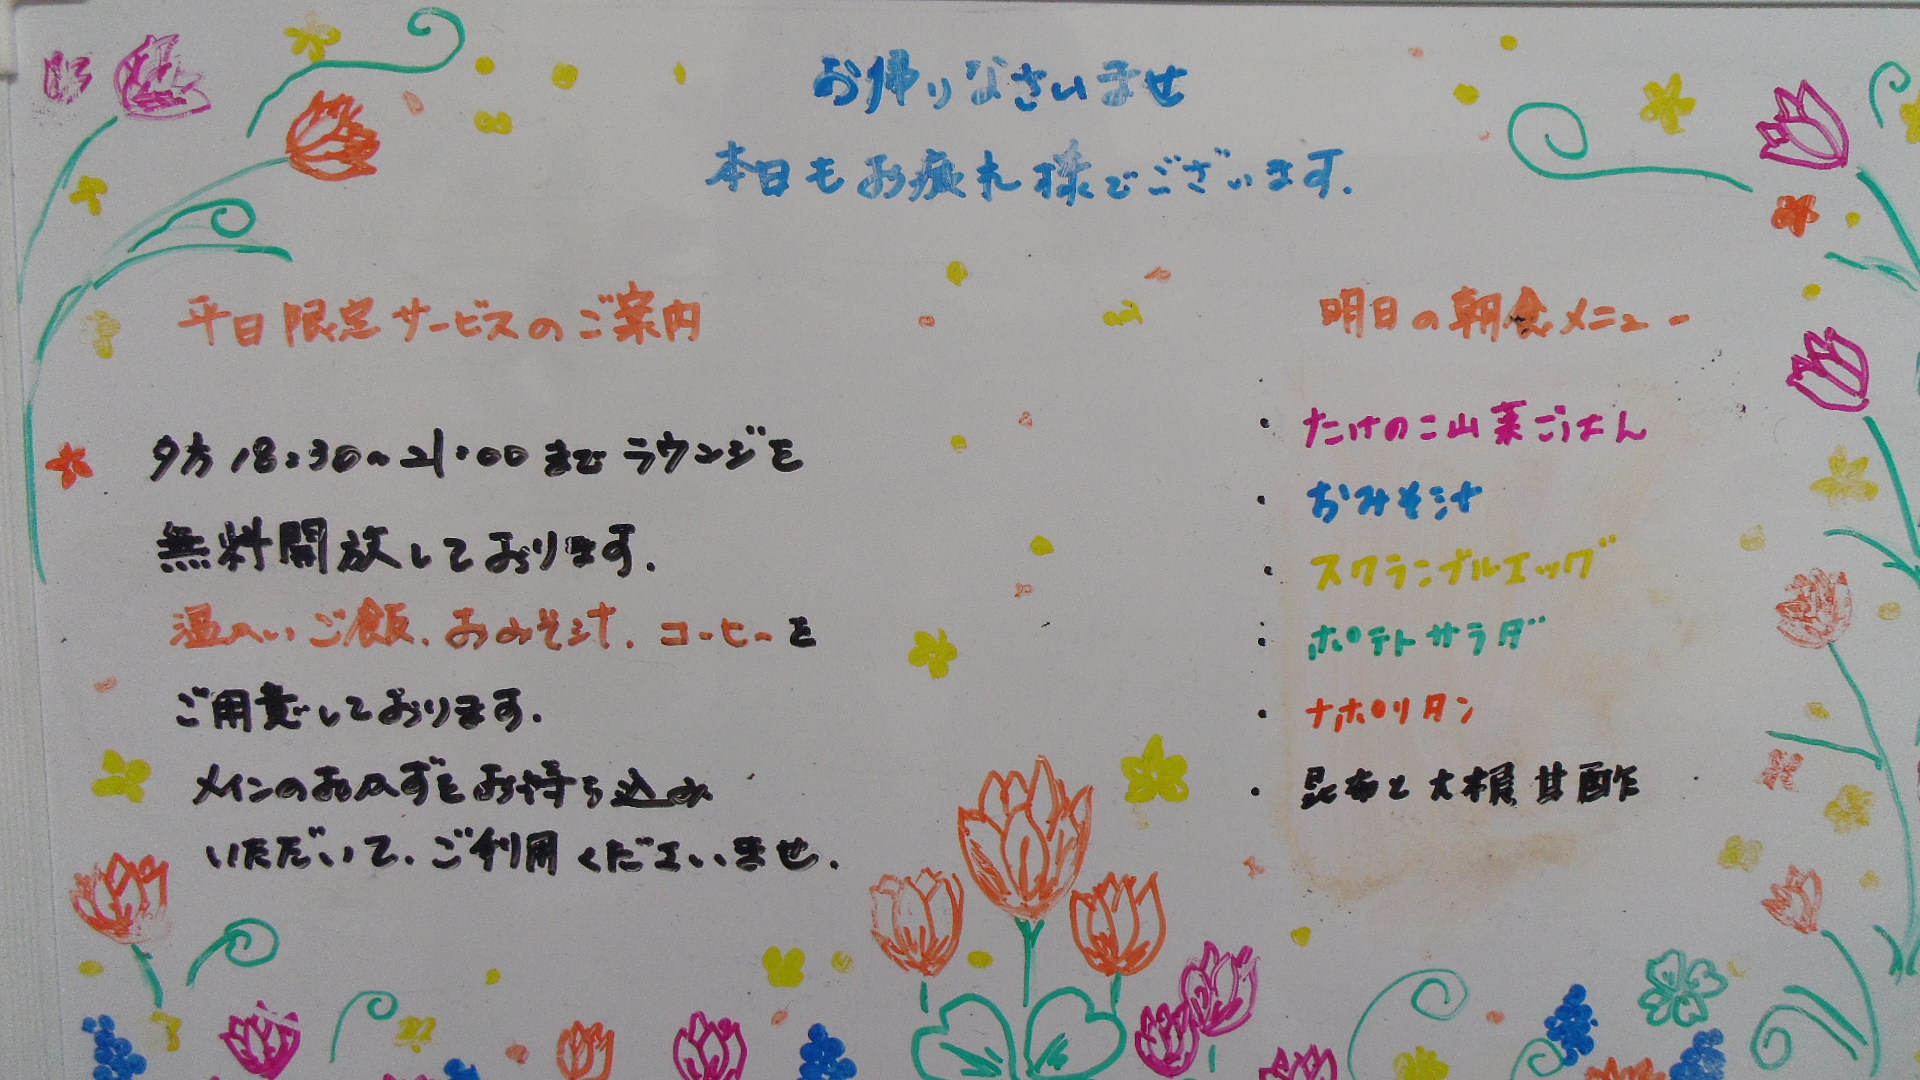 お帰りなさいませ
本日もお疲れ様でございます.
平日限定サービスのご案内
夕方18:30~21:00までラウンジを
無料開放しております.
温かいご飯、おみそ汁、コーヒーを
ご用意しております.
メインのおかずをお持ち込み
いただいて、ご利用くださいませ.
明日の朝食メニュー
・たけのこ山菜ごはん
・おみそ汁
・スクランブルエッグ
・ポテトサラダ
・ナポリタン
・昆布と大根甘酢